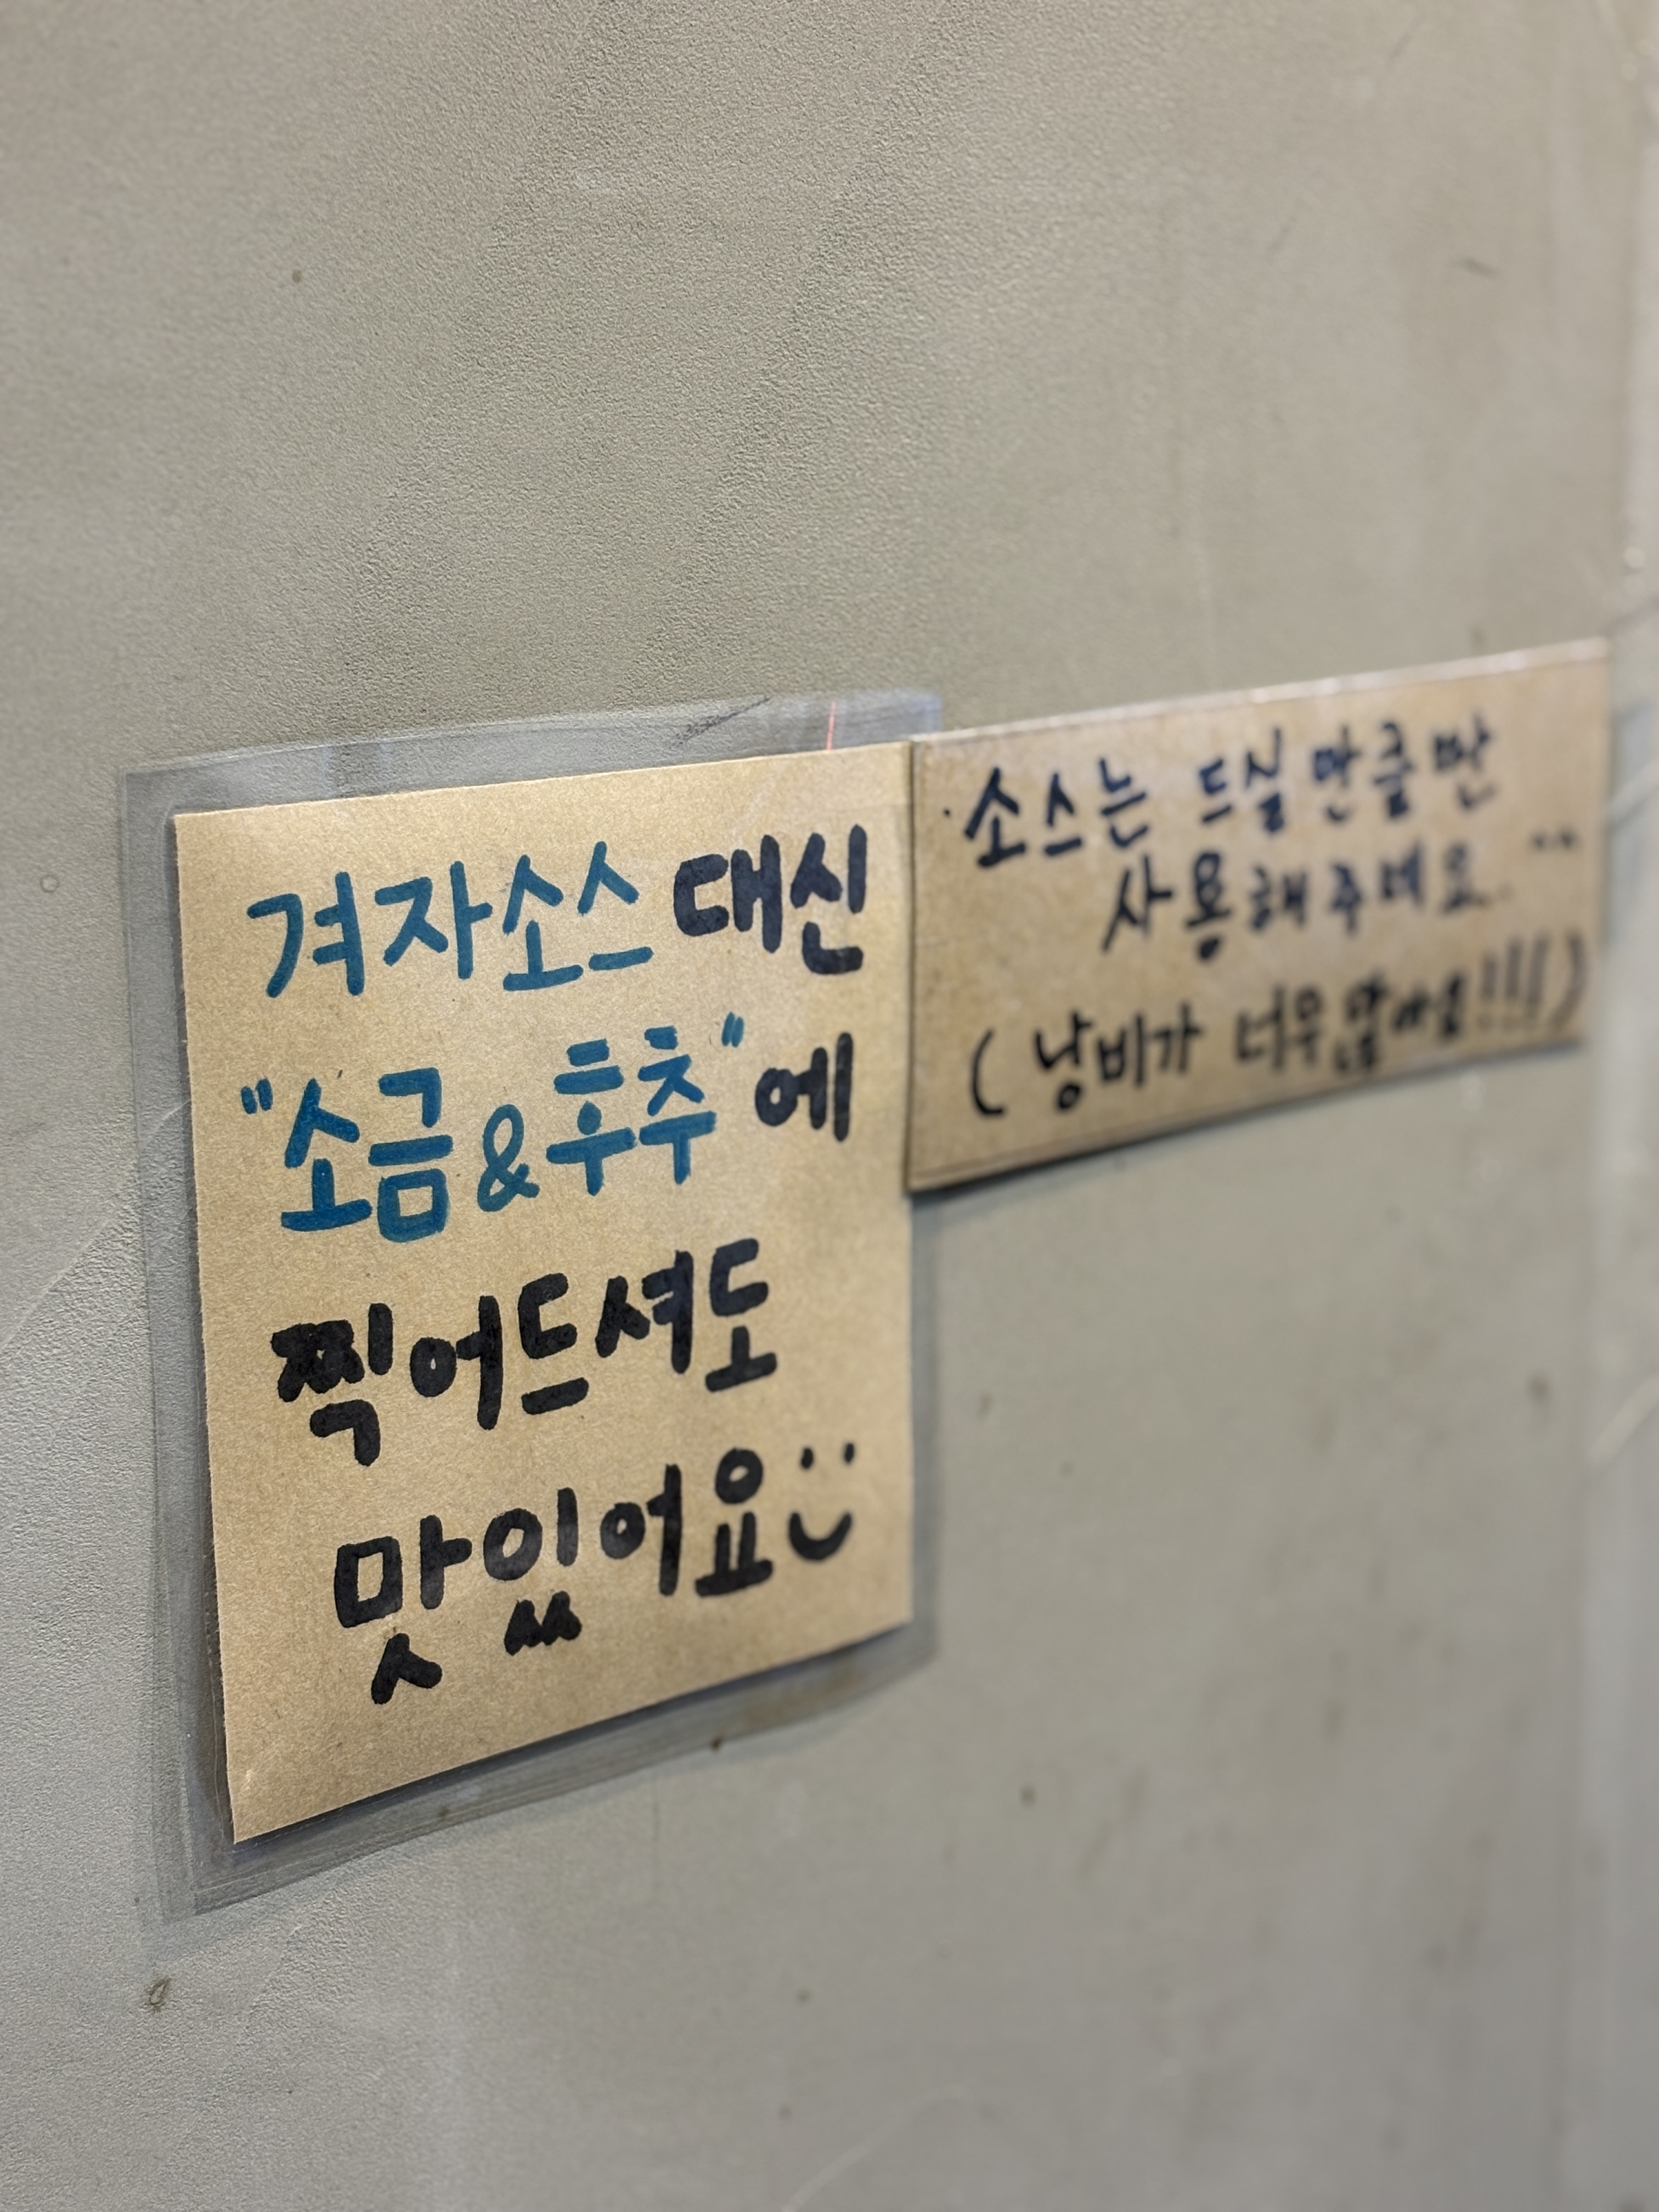 겨자소스 대신
"소금&후추"에
찍어드셔도
맛있어요
소스는 드실 만큼만
사용해주세요..
(낭비가 너무 많아요!!!)